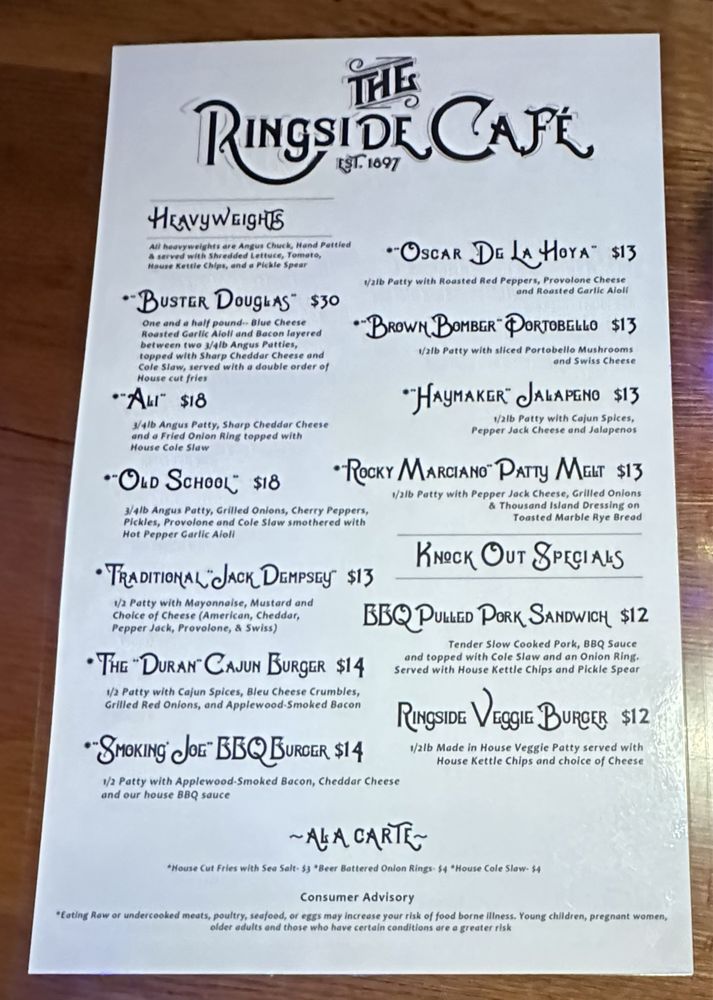 THE
RINGSIDE CAFÉ
EST. 1897
HEAVYWEIGHTS
All heavyweights are Angus Chuck, Hand Pattied
& served with Shredded Lettuce, Tomato,
House Kettle Chips, and a Pickle Spear
*"BUSTER DOUGLAS" $30
One and a half pound-- Blue Cheese
Roasted Garlic Aioli and Bacon layered
between two 3/4lb Angus Patties,
topped with Sharp Cheddar Cheese and
Cole Slaw, served with a double order of
House cut fries
*"ALI" $18
3/4lb Angus Patty, Sharp Cheddar Cheese
and a Fried Onion Ring topped with
House Cole Slaw
*"OLD SCHOOL" $18
3/4lb Angus Patty, Grilled Onions, Cherry Peppers,
Pickles, Provolone and Cole Slaw smothered with
Hot Pepper Garlic Aioli
*TRADITIONAL "JACK DEMPSEY" $13
1/2 Patty with Mayonnaise, Mustard and
Choice of Cheese (American, Cheddar,
Pepper Jack, Provolone, & Swiss)
*THE "DURAN" CAJUN BURGER $14
1/2 Patty with Cajun Spices, Bleu Cheese Crumbles,
Grilled Red Onions, and Applewood-Smoked Bacon
*"SMOKING JOE" BBQ BURGER $14
1/2 Patty with Applewood-Smoked Bacon, Cheddar Cheese
and our house BBQ sauce
*"OSCAR DE LA HOYA" $13
1/2lb Patty with Roasted Red Peppers, Provolone Cheese
and Roasted Garlic Aioli
*"BROWN BOMBER" PORTOBELLO $13
1/2lb Patty with sliced Portobello Mushrooms
and Swiss Cheese
*"HAYMAKER" JALAPENO $13
1/2lb Patty with Cajun Spices,
Pepper Jack Cheese and Jalapenos
*"ROCKY MARCIANO" PATTY MELT $13
1/2lb Patty with Pepper Jack Cheese, Grilled Onions
& Thousand Island Dressing on
Toasted Marble Rye Bread
KNOCK OUT SPECIALS
BBQ PULLED PORK SANDWICH $12
Tender Slow Cooked Pork, BBQ Sauce
and topped with Cole Slaw and an Onion Ring.
Served with House Kettle Chips and Pickle Spear
RINGSIDE VEGGIE BURGER $12
1/2lb Made in House Veggie Patty served with
House Kettle Chips and choice of Cheese
~ALA CARTE~
*House Cut Fries with Sea Salt- $3 *Beer Battered Onion Rings- $4 *House Cole Slaw- $4
Consumer Advisory
*Eating Raw or undercooked meats, poultry, seafood, or eggs may increase your risk of food borne illness. Young children, pregnant women,
older adults and those who have certain conditions are a greater risk